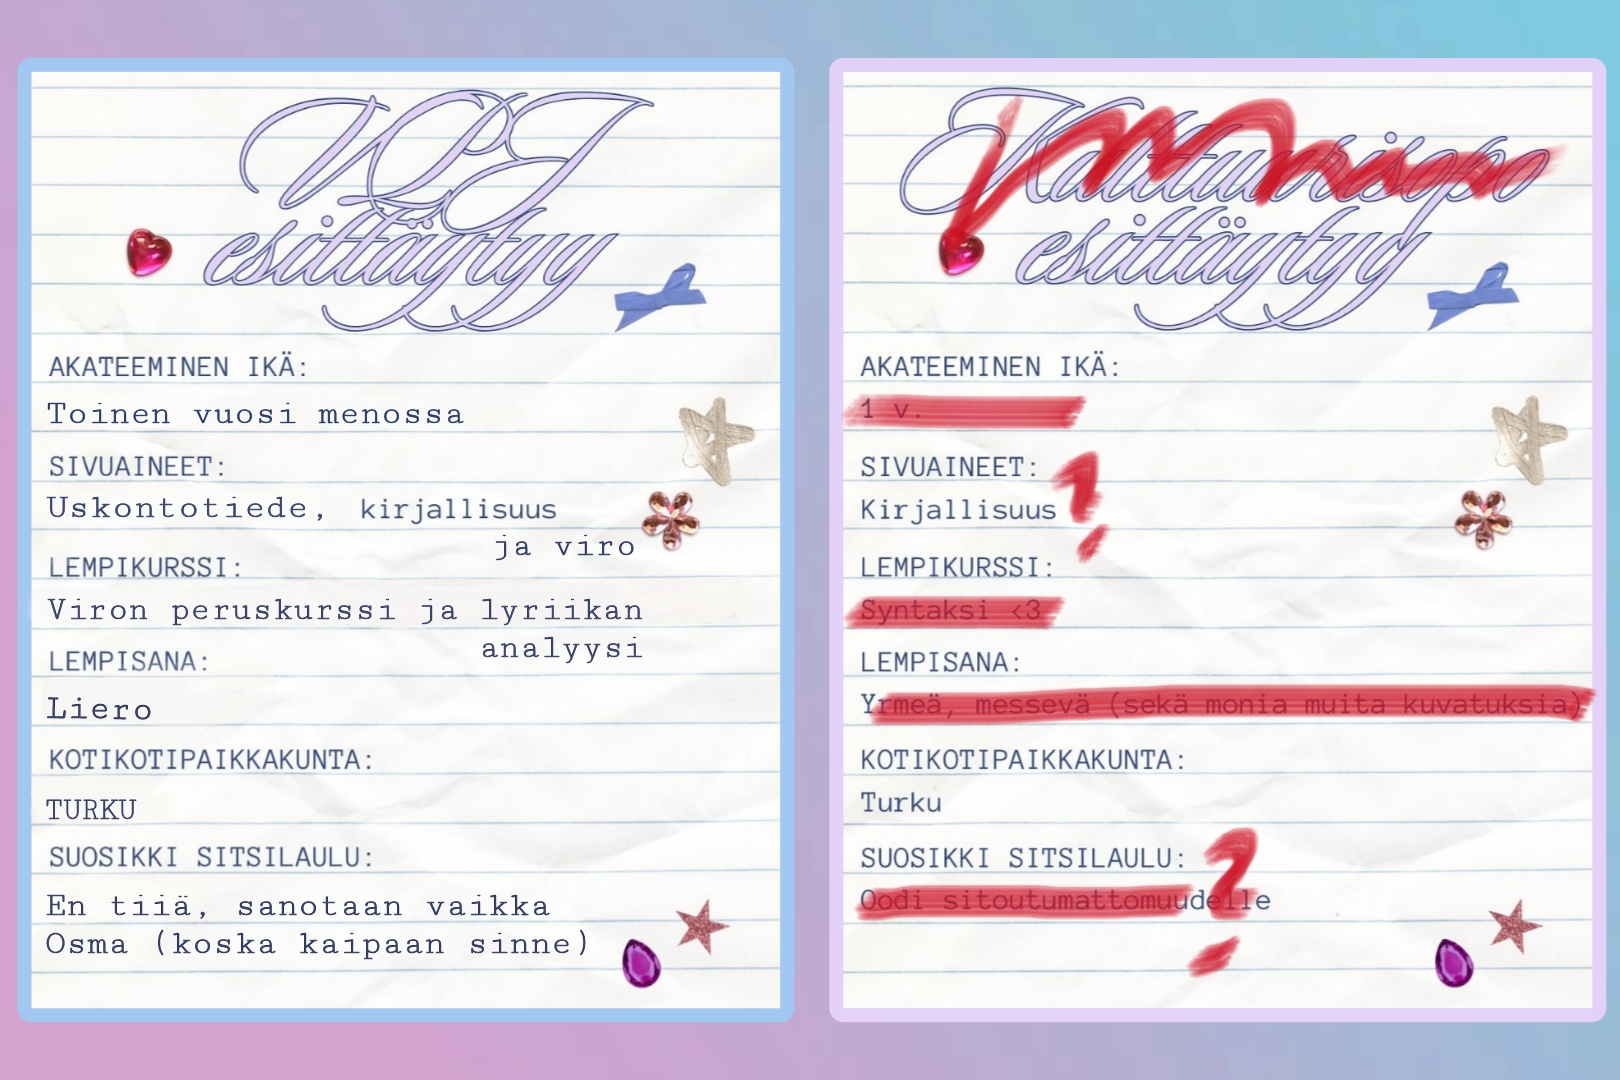 VPJ
esittäytyy
AKATEEMINEN IKÄ:
Toinen vuosi menossa
SIVUAINEET:
Uskontotiede, kirjallisuus
ja viro
LEMPIKURSSI:
Viron peruskurssi ja lyriikan
analyysi
LEMPISANA:
Liero
KOTIKOTIPAIKKAKUNTA:
TURKU
SUOSIKKI SITSILAULU:
En tiiä, sanotaan vaikka
Osma (koska kaipaan sinne)
Kulttuurisopo
esittäytyy
AKATEEMINEN IKÄ:
1 v.
SIVUAINEET: ?
Kirjallisuus
LEMPIKURSSI:
Syntaksi <3
LEMPISANA:
Yrmeä, messevä (sekä monia muita kuvatuksia)
KOTIKOTIPAIKKAKUNTA:
Turku
SUOSIKKI SITSILAULU: ?
Oodi sitoutumattomuudelle